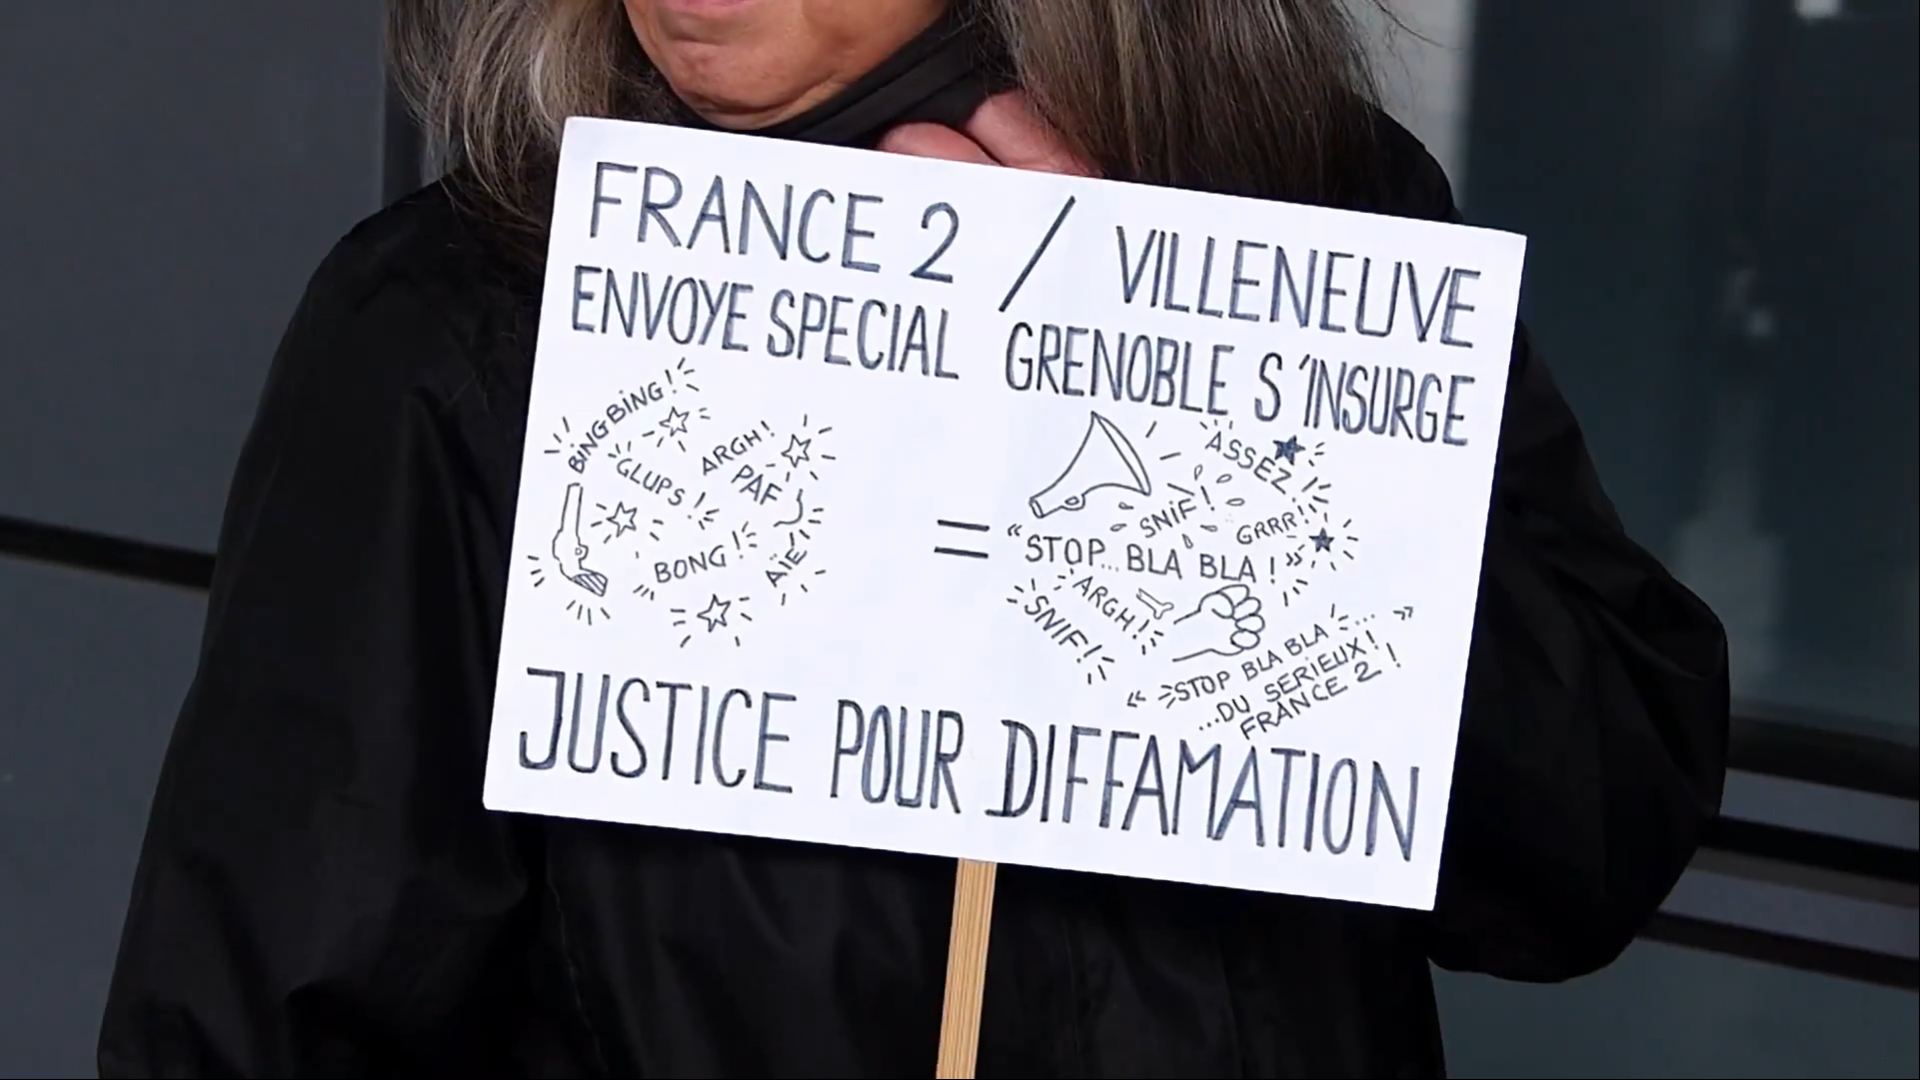 FRANCE 2 / VILLENEUVE
ENVOYE SPECIAL GRENOBLE S'INSURGE
BING BING!
ARGH!
GLUPS!
PAF
BONG!
AÏE
=
ASSEZ!
SNIF!
GRRR!
"STOP... BLA BLA!"
ARGH!
SNIF!
"STOP BLA BLA ... "
...DU SERIEUX!
FRANCE 2!
JUSTICE POUR DIFFAMATION